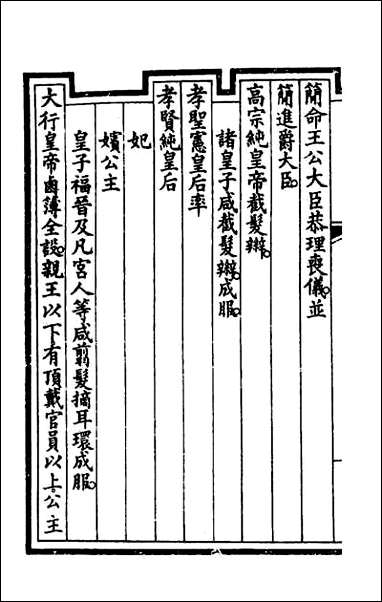 簡命王公大臣恭理喪儀並
簡進爵大臣
高宗純皇帝截髮辮
諸皇子咸截髮辮成服
孝聖憲皇后率
孝賢純皇后
妃
嬪公主
皇子福晉及凡宮人等咸翦髮摘耳環成服
大行皇帝鹵薄全設親王以下有頂戴官員以上公主